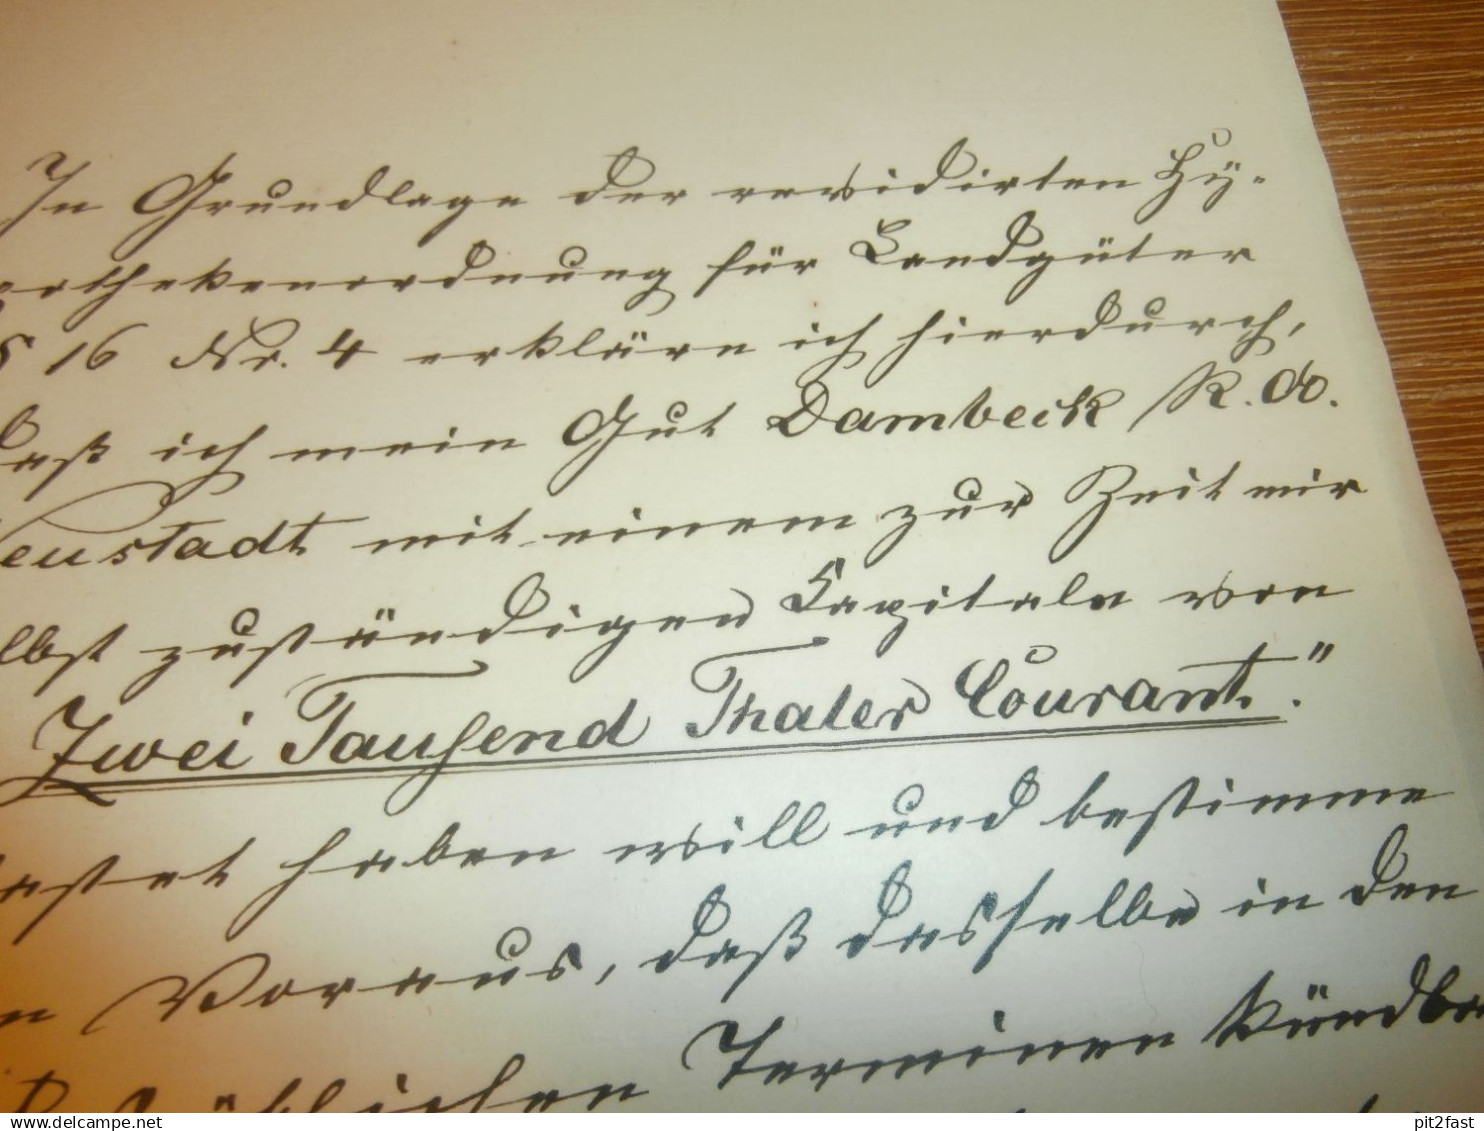 In Grundlage der revidirten Hÿ-
othekenordnung für Landgüter
§ 16 Nr. 4 erkläre ich hierdurch,
daß ich mein Gut Dambeck R. A.
Neustadt mit einem zur Zeit mir
lbst zuständigen Capitale von
Zwei Tausend Thaler Courant."
astet haben will und bestimme
n Voraus, daß dasselbe in den
Terminen kündba
www.delcampe.net
pit2fast